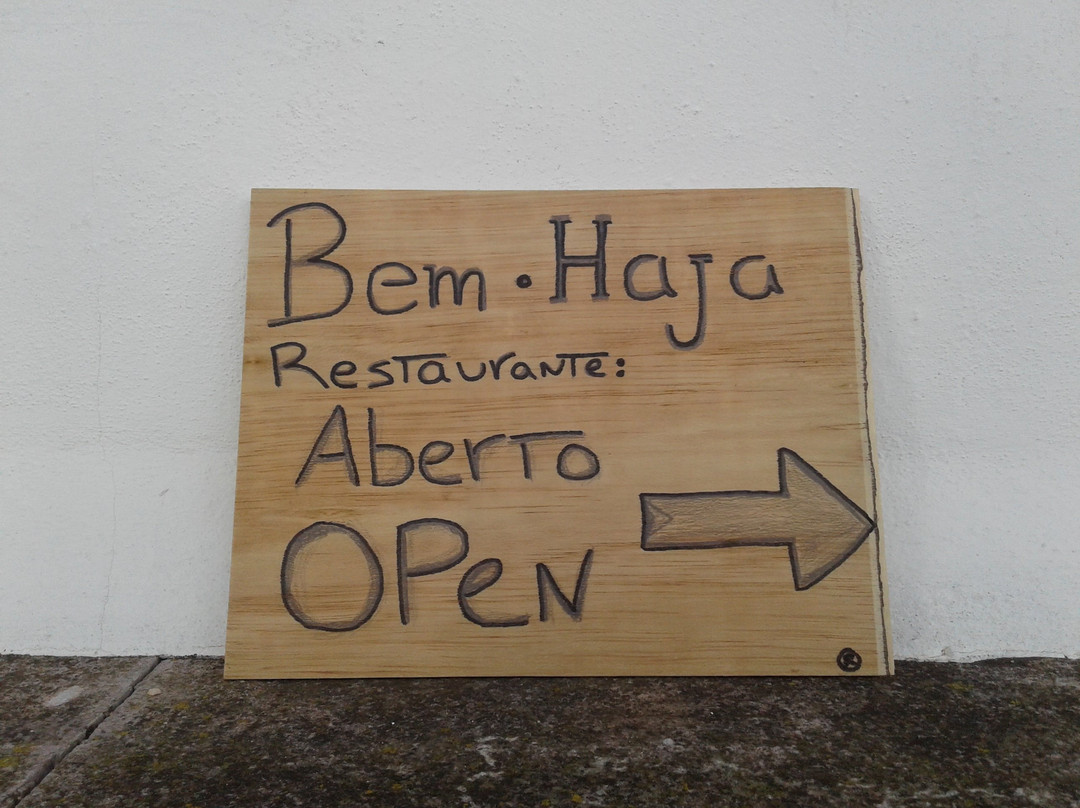 Bem · Haja
Restaurante:
Aberto
OPen
®